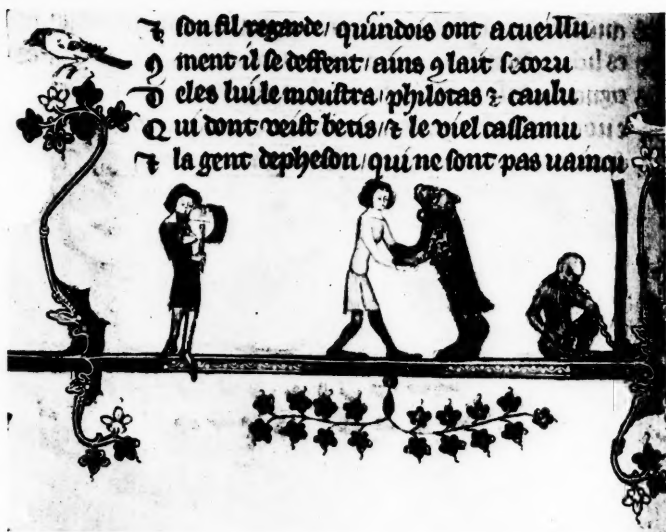 ⁊ son fil regarde / quindois ont acueillu
9 ment il se deffent / ains 9lait secoru
D eles lui le moustra / philotas ⁊ caulu
Q ui dont veist betis / ⁊ le viel cassamu
⁊ la gent depheson / qui ne sont pas uaincu